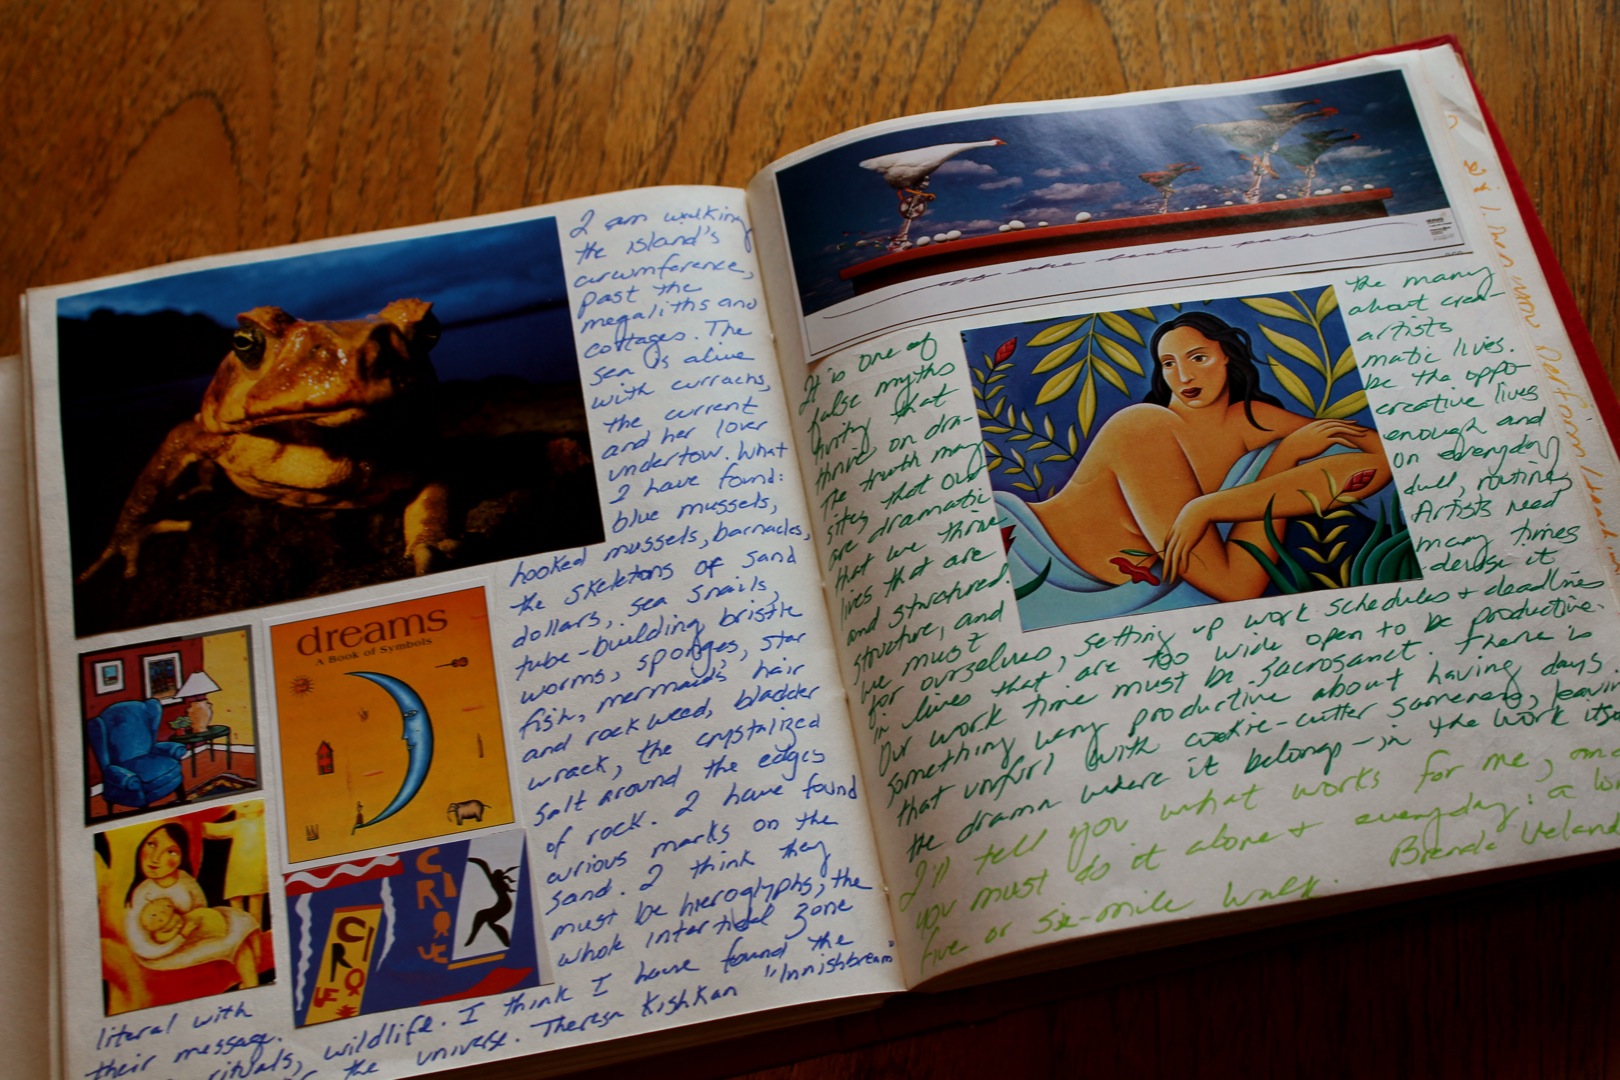 I am walking
the island's
circumference,
past the
megaliths and
cottages. The
sea is alive
with currachs,
the current
and her lover
undertow. What
I have found:
blue mussels,
hooked mussels, barnacles,
the skeletons of sand
dollars, sea snails,
tube-building bristle
worms, sponges, star
fish, mermaid's hair
and rockweed, bladder
wrack, the crystalized
salt around the edges
of rock. I have found
curious marks on the
sand. I think they
must be hieroglyphs, the
whole intertidal zone
literal with
their message.
rituals, wildlife. I think I have found the
the universe. Theresa Kishkan "Innishbream"
dreams
A Book of Symbols
CIRQUE
CIRQUE
off the beaten path
It is one of the many
false myths about crea-
tivity that artists
thrive on dra- matic lives.
The truth may be the oppo-
site, that our creative lives
are dramatic enough and
that we thrive on everyday
lives that are dull, routine
and structured. Artists need
structure, and many times
we must devise it
for ourselves, setting up work schedules + deadlines
in lives that are too wide open to be productive.
Our work time must be sacrosanct. There is
something very productive about having days
that unfurl with cookie-cutter sameness, leaving
the drama where it belongs - in the work itself
I'll tell you what works for me, and
you must do it alone + everyday: a long
five or six-mile walk. Brenda Ueland